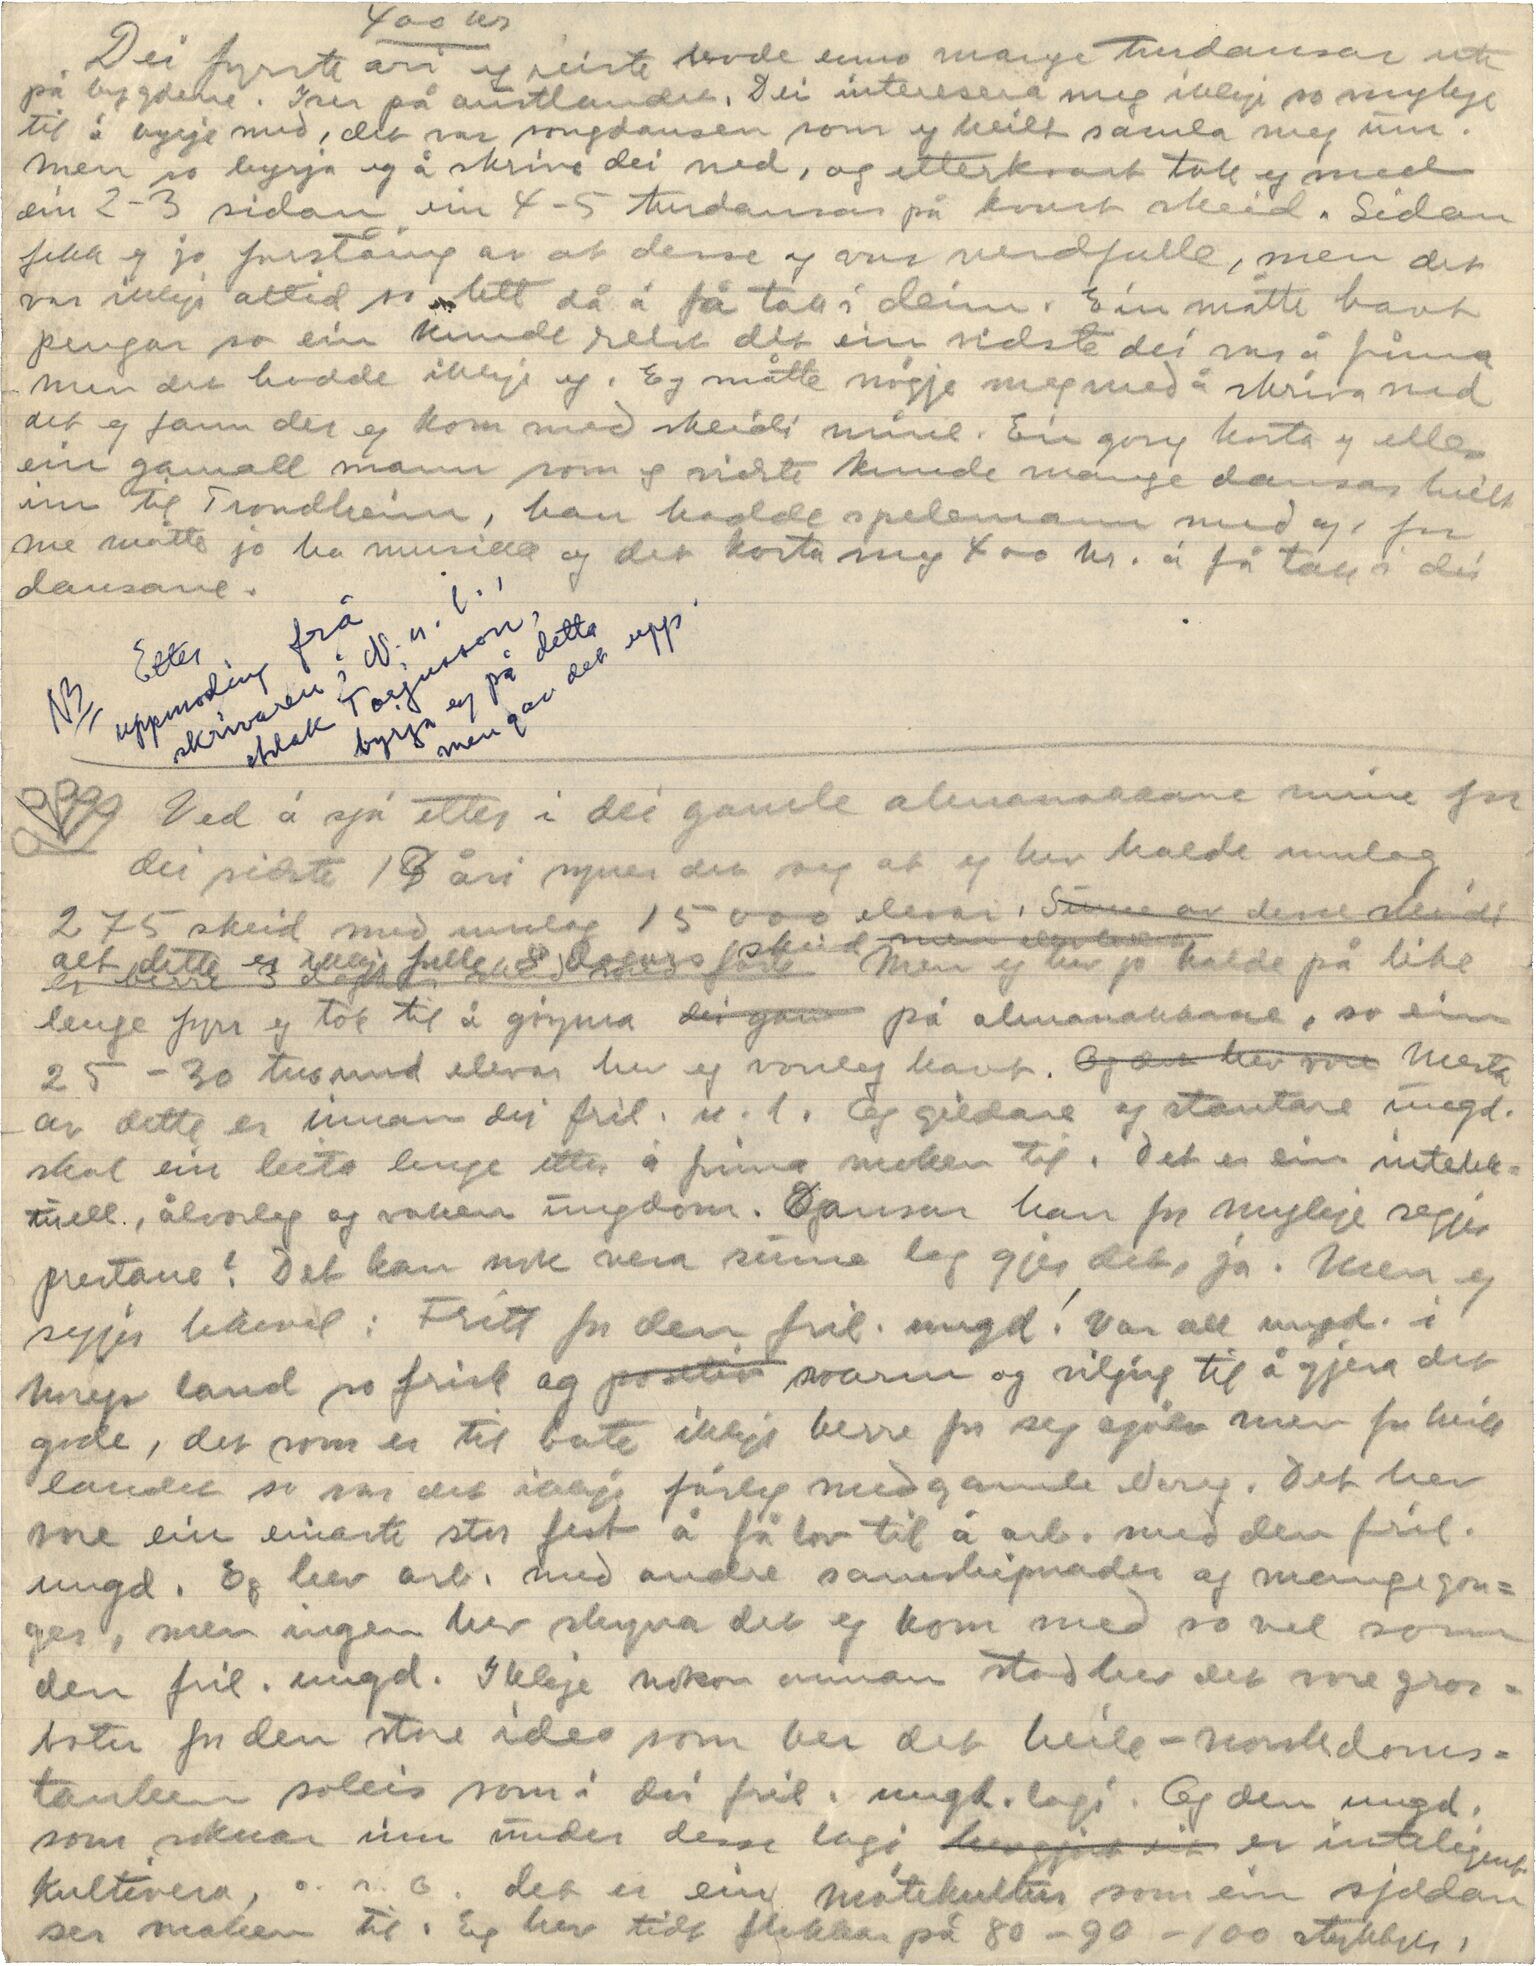 400 kr
Dei fyrste åri eg reiste livde enno mange turdansar ute
på bygdene. Iser på austlandet. Dei interesera meg ikkje so mykje
til å byrje med, det var songdansen som eg heilt samla meg um.
Men so byrja eg å skrive dei ned, og etterkvart tok eg med
ein 2-3 sidan ein 4-5 turdansar på kvart skeid. Sidan
fekk eg jo forståing av at desse og var verdfulle, men det
var ikkje alltid so lett då å få tak i deim. Ein måtte havt
pengar so ein kunde reist dit ein visste dei var å finna
men det hadde ikkje eg. Eg måtte nøgje meg med å skriva ned
det eg fann der eg kom med skeidi mine. Ein gong kosta eg elles
ein gamall mann som eg visste kunde mange dansar heilt
inn til Trondheim, han hadde spelemann med og, for
me måtte jo ha musikk og det kosta meg 400 kr. å få tak i dei
dansane.
NB, Etter
uppmoding frå
skrivaren i N.u.l.,
Aslak Torjusson,
byrja eg på detta
men gav det upp.
Ved å sjå etter i dei gamle almanakkane mine for
dei siste 18 åri syner det seg at eg hev halde umlag
275 skeid med umlag 15000 elevar. Sume av desse skeidi
alt dette er ikkje fulle 8 dagars skeid men
er berre 3 dagars Men eg hev jo halde på like
lenge fyrr eg tok til å gøyma dei gam på almanakkane, so ein
25-30 tusund elevar hev eg vonleg havt. Og det hev vore Mesta
av dette er innan dei fril. u.l. Og gildare og stautare ungd.
skal ein leita lenge etter å finna maken til. Det er ein intelek=
tuell, ålvorleg og vaken ungdom. Dansar han for mykje segjer
prestane? Det kan nok vera sume lag gjer det, ja. Men eg
segjer likevel: Fritt for den fril. ungd! Var all ungd. i
Noregs land so frisk og positiv varm og viljug til å gjera det
gode, det som er til bate ikkje berre for seg sjølv men for heile
landet so var det ikkje fårleg med gamle Noreg. Det hev
vore ein einaste stor fest å få lov til å arb. med den fril.
ungd. Eg hev arb. med andre samskipnader og mange gon=
ger, men ingen hev skyna det eg kom med so vel som
den fril. ungd. Ikkje nokon annan stad hev det vore gror=
botn for den store ideo som ber det heile - norskdoms=
tanken soleis som i dei fril. ungd.lagi. Og den ungd.
som soknar inn under desse lagi hev gjort sit er inteligent
kultivera, o.s.b. det er ein møtekultur som ein sjeldan
ser maken til. Eg hev tidt flokkar på 80-90-100 stykkjer,